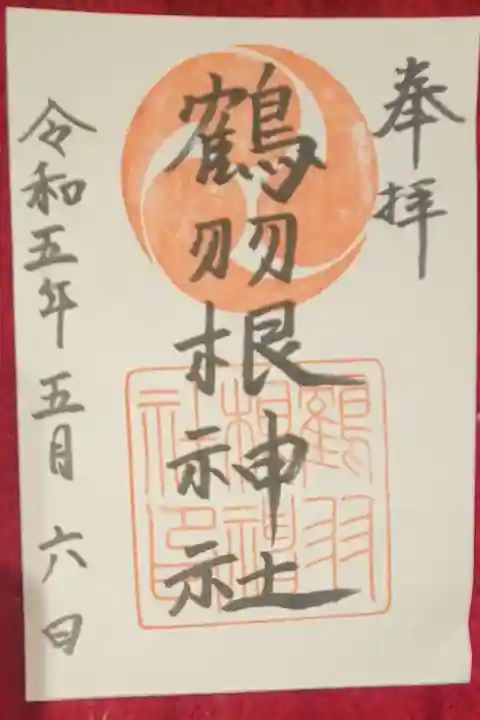 奉拝
鶴羽根神社
令和五年五月六日
鶴羽
根神
社印